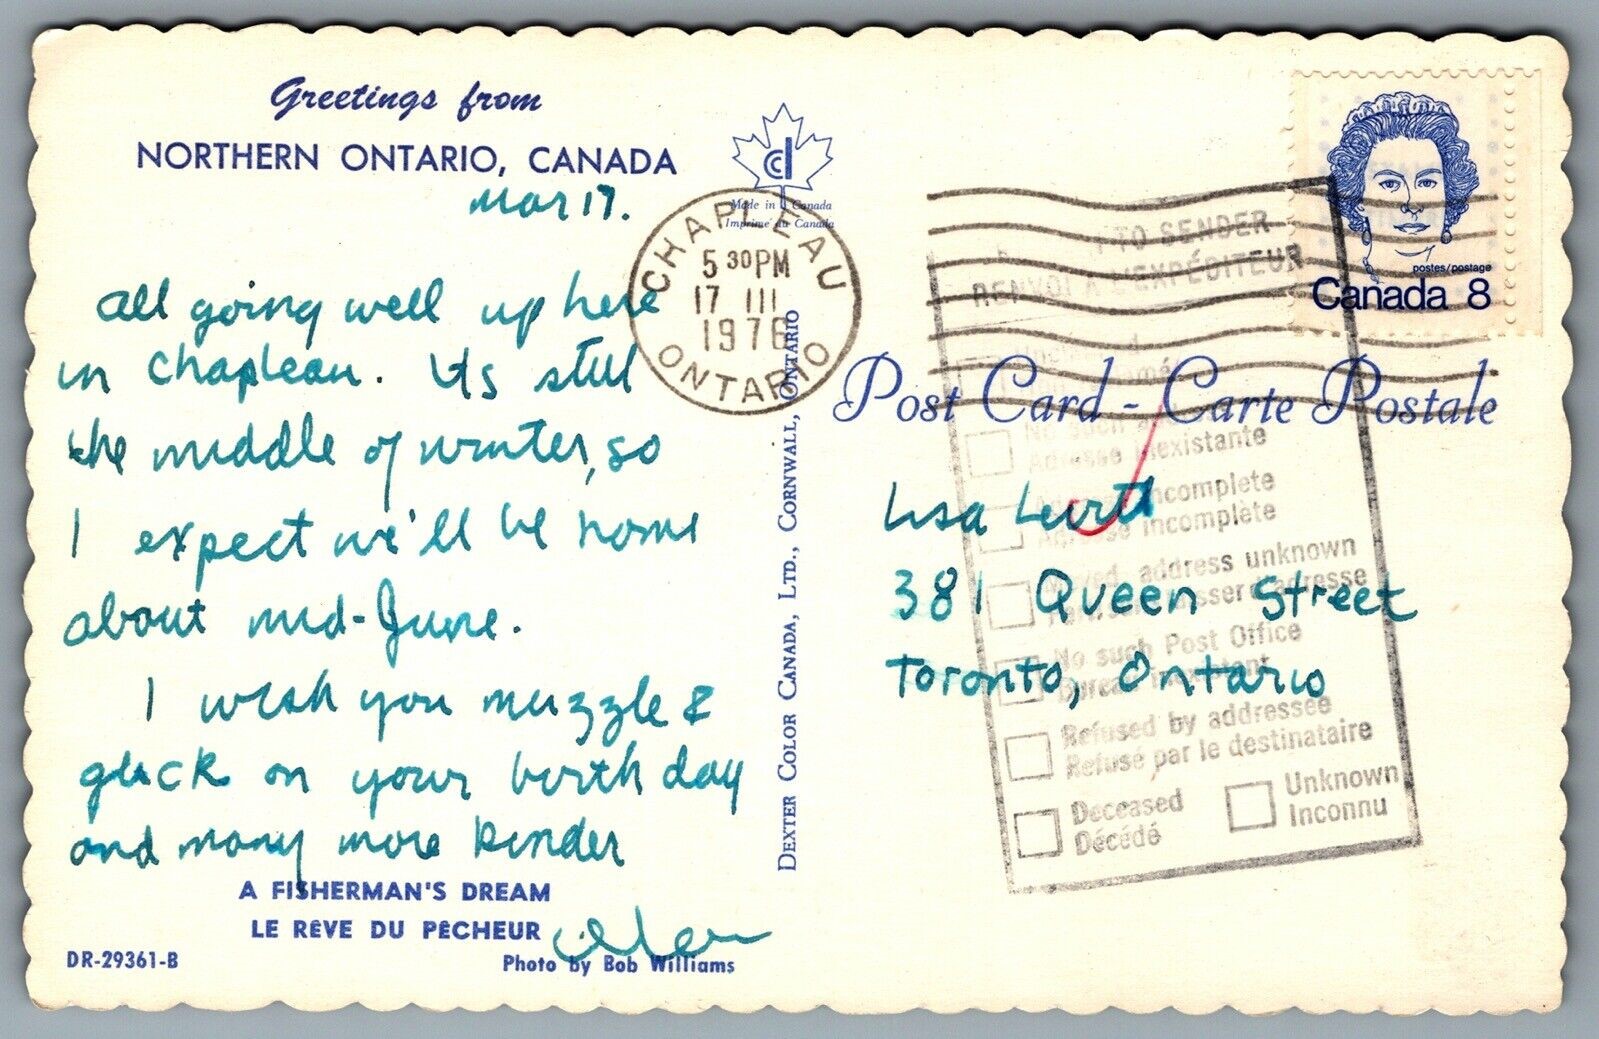 Greetings from
NORTHERN ONTARIO, CANADA
Mar 17.
All going well up here
in Chapleau. Its still
the middle of winter, so
I expect we'll be home
about mid-June.
I wish you muzzle &
gluck on your birthday
and many more kinder
A FISHERMAN'S DREAM
LE RÊVE DU PÊCHEUR
DR-29361-B
Photo by Bob Williams
Made in Canada
Imprimé au Canada
DEXTER COLOR CANADA, LTD., CORNWALL, ONTARIO
CHAPLEAU
5 30PM
17 III
1976
ONTARIO
postes/postage
Canada 8
TO SENDER
RENVOI À L'EXPÉDITEUR
Post Card - Carte Postale
No such
Adresse inexistante
incomplete
Adresse incomplète
address unknown
adresse
No such Post Office
Bureau inexistant
Refused by addressee
Refusé par le destinataire
Deceased
Décédé
Unknown
Inconnu
Lisa
381 Queen Street
Toronto, Ontario